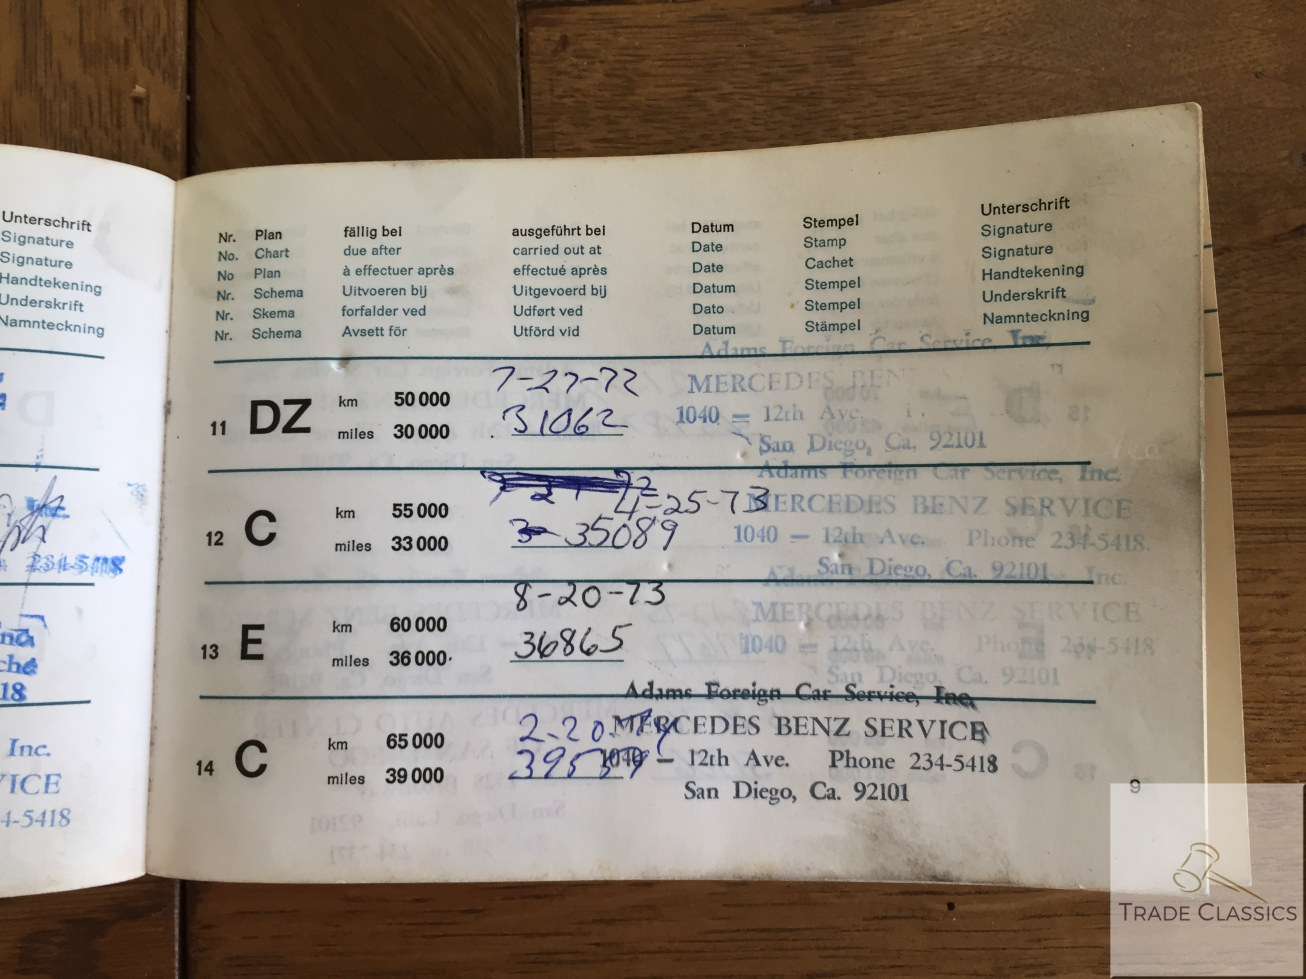 Unterschrift
Signature
Signature
Handtekening
Underskrift
Namnteckning
234-5418
18
Inc.
VICE
4-5418
Nr. Plan fällig bei ausgeführt bei Datum Stempel Unterschrift
No. Chart due after carried out at Date Stamp Signature
No Plan à effectuer après effectué après Date Cachet Signature
Nr. Schema Uitvoeren bij Uitgevoerd bij Datum Stempel Handtekening
Nr. Skema forfalder ved Udført ved Dato Stempel Underskrift
Nr. Schema Avsett för Utförd vid Datum Stämpel Namnteckning
Adams Foreign Car Service, Inc.
7-27-72 MERCEDES BENZ
11 DZ km 50 000 31062 1040 — 12th Ave.
miles 30 000 San Diego, Ca. 92101
Adams Foreign Car Service, Inc.
4-25-73 MERCEDES BENZ SERVICE
12 C km 55 000 35089 1040 — 12th Ave. Phone 234-5418
miles 33 000 San Diego, Ca. 92101
Adams Foreign Car Service, Inc.
8-20-73 MERCEDES BENZ SERVICE
13 E km 60 000 36865 1040 — 12th Ave. Phone 234-5418
miles 36 000 San Diego, Ca. 92101
Adams Foreign Car Service, Inc.
2-20-74 MERCEDES BENZ SERVICE
14 C km 65 000 1040 — 12th Ave. Phone 234-5418
miles 39 000 San Diego, Ca. 92101
9
TRADE CLASSICS